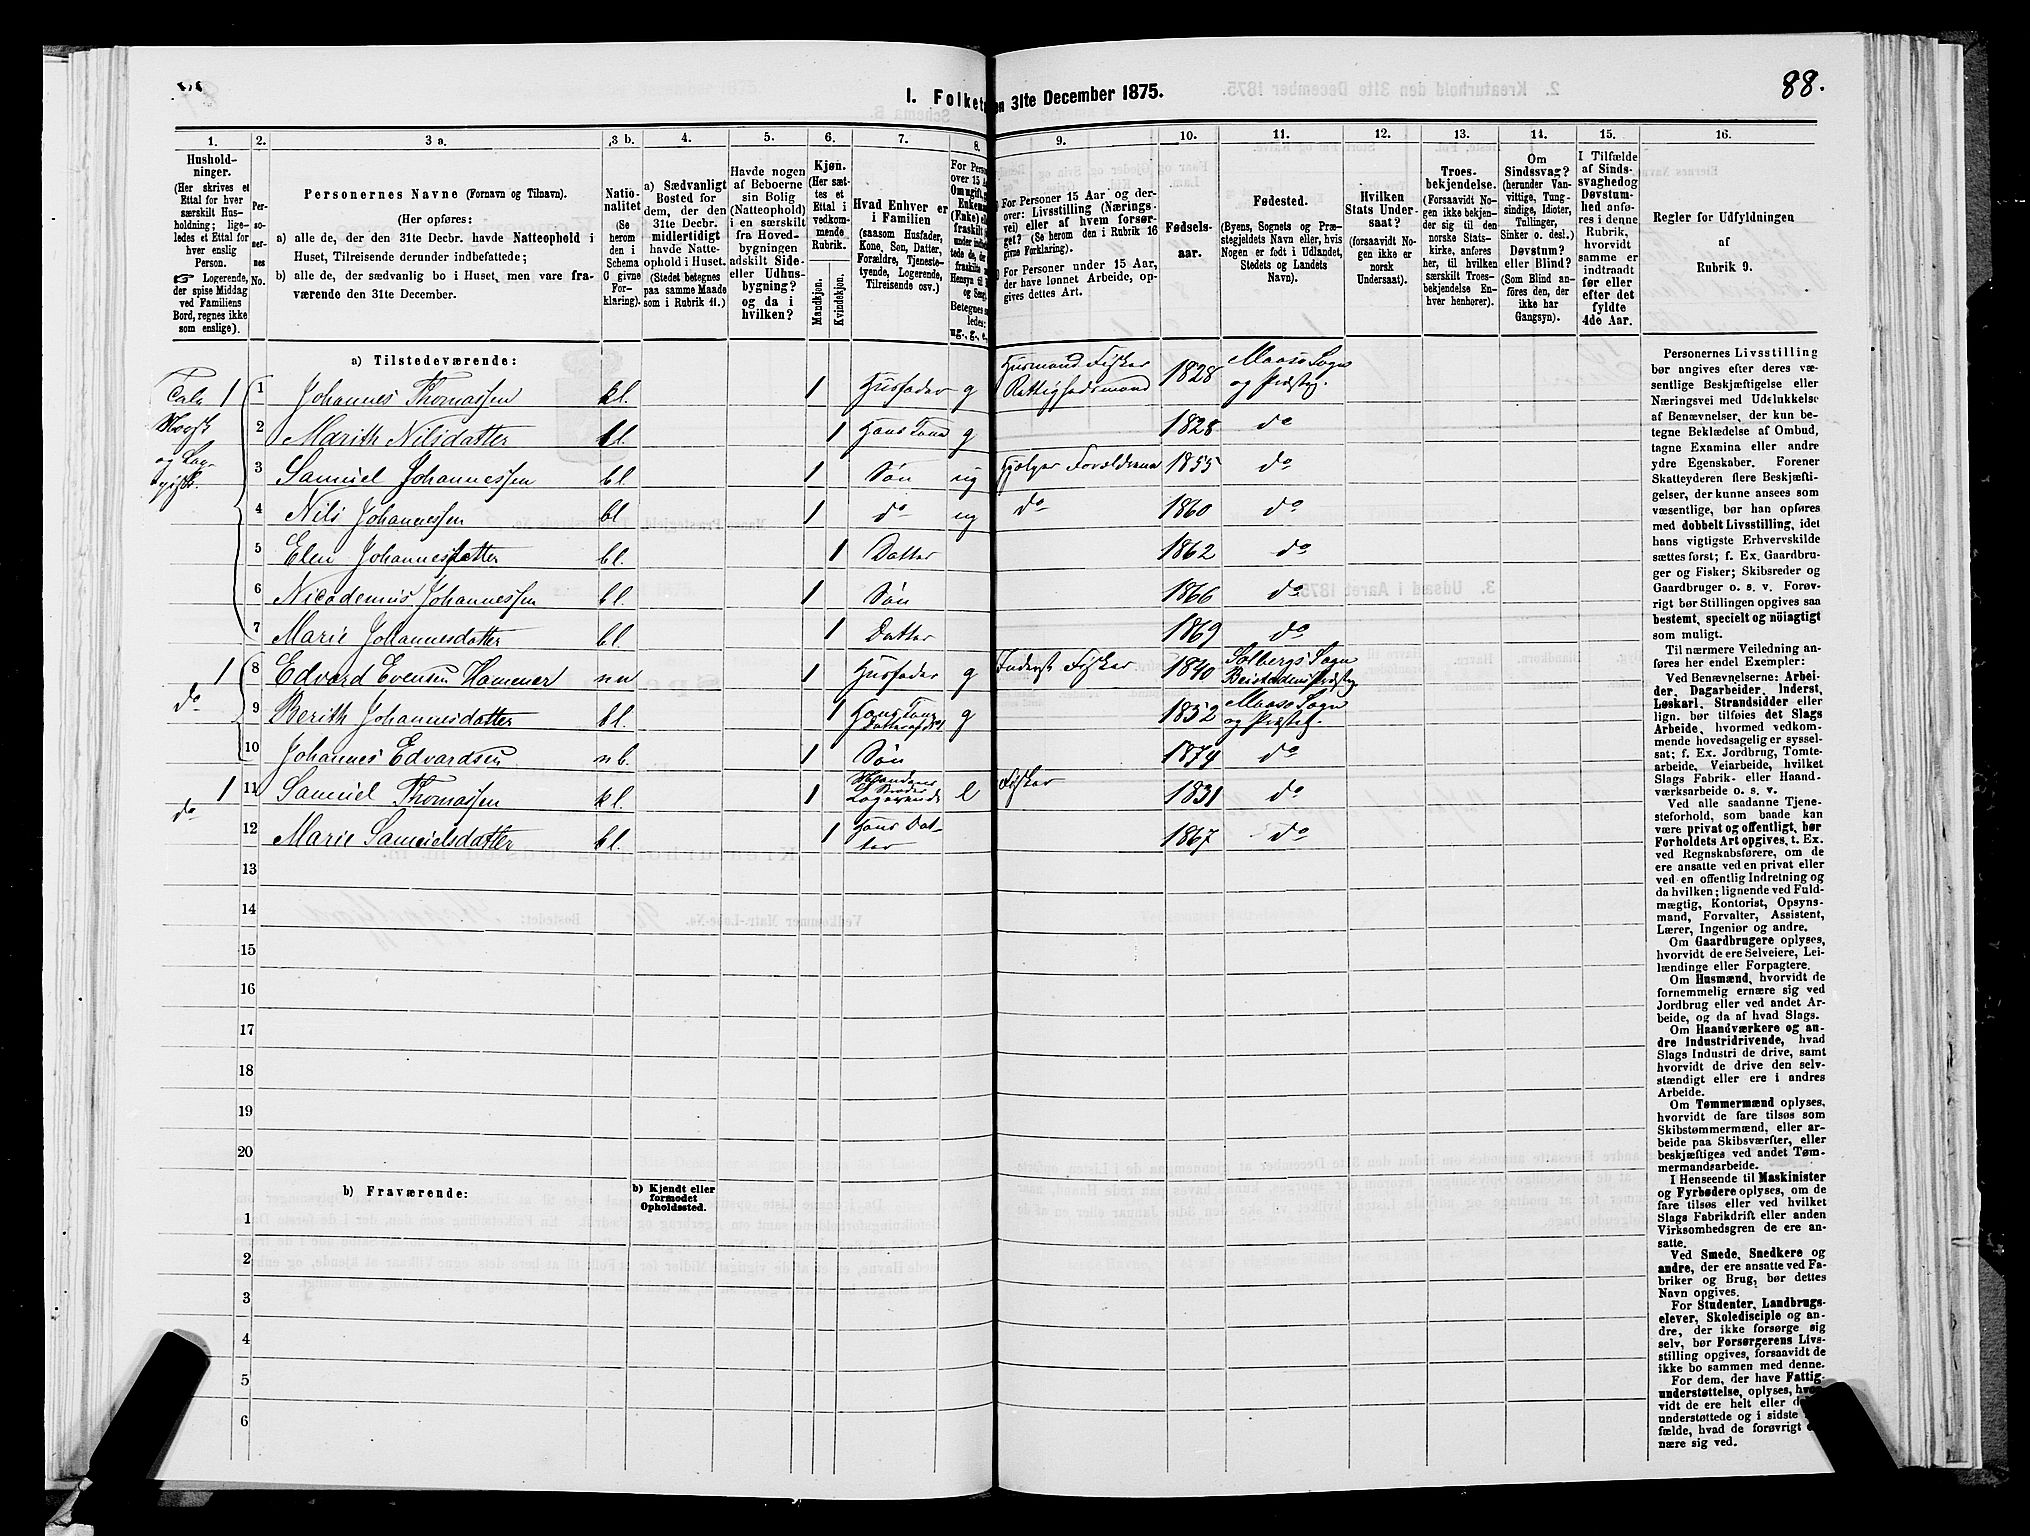 88.
I. Folket
en 31te December 1875.
1.
2.
3 a.
3 b.
4.
5.
6.
7.
8.
9.
10.
11.
12.
13.
14.
15.
16.
Hushold-
ninger.
(Her skrives et
Ettal for hver
særskilt Hus-
holdning; lige-
ledes et Ettal for
hver enslig
Person.
Logerende,
der spise Middag
ved Familiens
Bord, regnes ikke
som enslige).
Per-
so-
ner-
nes
No.
Personernes Navne (Fornavn og Tilnavn).
(Her opføres:
a) alle de, der den 31te Decbr. havde Natteophold i
Huset, Tilreisende derunder indbefattede;
b) alle de, der sædvanlig bo i Huset, men vare fra-
værende den 31te December.
Natio-
nalitet
(Se
herom
den i
Schema
C givne
For-
klaring).
a) Sædvanligt
Bosted for
dem, der den
31te Decbr.
midlertidigt
havde Natte-
ophold i Huset.
(Stedet betegnes
paa samme Maade
som i Rubrik 11.)
Havde nogen
af Beboerne
sin Bolig
(Natteophold)
i en særskilt
fra Hoved-
bygningen
adskilt Side-
eller Udhus-
bygning?
og da i
hvilken?
Kjøn.
(Her sæt-
tes et
Ettal i
vedkom-
mende
Rubrik.
Mandkjøn.
Kvindekjøn.
Hvad Enhver er
i Familien
(saasom Husfader,
Kone, Søn, Datter,
Forældre, Tjeneste-
tyende, Logerende,
Tilreisende osv.)
For Persone
over 15 Aar
Om ugift, g
Enkeman
(Enke) elle
fraskilt
ledes:
ug., g., e.,
For Personer 15 Aar og der-
over: Livsstilling (Nærings-
vei) eller af hvem forsør-
get? (Se herom den i Rubrik 16
givne Forklaring).
For Personer under 15 Aar,
der have lønnet Arbeide, op-
gives dettes Art.
Fødsels-
aar.
Fødested.
(Byens, Sognets og Præ-
stegjeldets Navn eller, hvis
Nogen er født i Udlandet,
Stedets og Landets
Navn).
Hvilken
Stats Under-
saat?
(forsaavidt No-
gen ikke er
norsk
Undersaat).
Troes-
bekjendelse.
(Forsaavidt No-
gen ikke bekjen-
der sig til den
norske Stats-
kirke, anføres
her, til hvilken
særskilt Troes-
bekjendelse En-
hver henhører).
Om
Sindssvag?
(herunder Van-
vittige, Tung-
sindige, Idioter,
Tullinger,
Sinker o. desl.)
Døvstum?
eller Blind?
(Som Blind an-
føres den, der
ikke har
Gangsyn).
I Tilfælde
af Sinds-
svaghedog
Døvstum-
hed anfø-
res i denne
Rubrik,
hvorvidt
samme er
indtraadt
før eller
efter det
fyldte
4de Aar.
Regler for Udfyldningen
af
Rubrik 9.
a) Tilstedeværende:
1 1 Johannes Thomassen kl. 1 Husfader g Husmand Fisker Rettighedsmand 1828 Maasø Sogn og Præstg.
2 Marith Nilsdatter kl. 1 Hans Kone g 1828 do
3 Samuel Johannessen bl 1 Søn ug Hjelper Forældrene 1855 do
4 Nils Johannessen bl 1 do ug do 1860 do
5 Elen Johannesdatter bl. 1 Datter 1862 do
6 Nicodemus Johannessen bl. 1 Søn 1866 do
7 Marie Johannesdatter bl. 1 Datter 1869 do
1 8 Edvard Evensen Hamener nn 1 Husfader g Inderst Fisker 1840 Solbergs Sogn Beistadens Præstg
do 9 Berith Johannesdatter bl. 1 Hans Kone g 1852 Maasø Sogn og Præstg.
10 Johannes Edvardsen nb. 1 Søn 1874 do
1 11 Samuel Thomassen kl. 1 Broder Logerende e Fisker 1831 do
do 12 Marie Samuelsdatter bl. 1 Hans Dat-
ter 1867 do
13
14
15
16
17
18
19
20
b) Fraværende:
b) Kjendt eller
formodet
Opholdssted.
1
2
3
4
5
6
Personernes Livsstilling
bør angives efter deres væ-
sentlige Beskjæftigelse eller
Næringsvei med Udelukkelse
af Benævnelser, der kun be-
tegne Beklædelse af Ombud,
tagne Examina eller andre
ydre Egenskaber. Forener
Skatteyderen flere Beskjæfti-
gelser, der kunne ansees som
væsentlige, bør han opføres
med dobbelt Livsstilling, idet
hans vigtigste Erhvervskilde
sættes først; f. Ex. Gaardbru-
ger og Fisker; Skibsreder og
Gaardbruger o. s. v. Forøv-
rigt bør Stillingen opgives saa
bestemt, specielt og nöiagtigt
som muligt.
Til nærmere Veiledning an-
føres her endel Exempler:
Ved Benævnelserne: Arbei-
der, Dagarbeider, Inderst,
Løskarl, Strandsidder eller
lign. bør tilføies det Slags
Arbeide, hvormed vedkom-
mende hovedsagelig er syssel-
sat; f. Ex. Jordbrug, Tomte-
arbeide, Veiarbeide, hvilket
Slags Fabrik- eller Haand-
værksarbeide o. s. v.
Ved alle saadanne Tjene-
steforhold, som baade kan
være privat og offentlig, bør
Forholdets Art opgives, t. Ex.
ved Regnskabsførere, om de
ere ansatte ved en privat eller
ved en offentlig Indretning og
da hvilken; lignende ved Fuld-
mægtig, Kontorist, Opsyns-
mand, Forvalter, Assistent,
Lærer, Ingeniør og andre.
Om Gaardbrugere oplyses,
hvorvidt de ere Selveiere, Lei-
lændinge eller Forpagtere.
Om Husmænd, hvorvidt de
fornemmelig ernære sig ved
Jordbrug eller ved andet Ar-
beide, og da af hvad Slags.
Om Haandværkere og an-
dre Industridrivende, hvad
Slags Industri de drive, samt
hvorvidt de drive den selv-
stændigt eller ere i andres
Arbeide.
Om Tømmermænd oplyses,
hvorvidt de fare tilsøs som
Skibstømmermænd, eller ar-
beide paa Skibsværfter, eller
beskjæftiges ved andet Tøm-
mermandsarbeide.
I Henseende til Maskinister
og Fyrbødere oplyses, om de
fare tilsøs eller ved hvilket
Slags Fabrikdrift eller anden
Virksomhedsgren de ere an-
satte.
Ved Smede, Snedkere og
andre, der ere ansatte ved Fa-
briker og Brug, bør dettes
Navn opgives.
For Studenter, Landbrugs-
elever, Skoledisciple og an-
dre, der ikke forsørge sig
selv, bør Forsørgerens Livs-
stilling opgives, forsaavidt de
ikke bo sammen med denne.
For dem, der have Fattig-
understøttelse, oplyses,
vidt de ere helt eller
understøttede og i sidste
fælde, hvad de forøvrigt
nære sig ved.